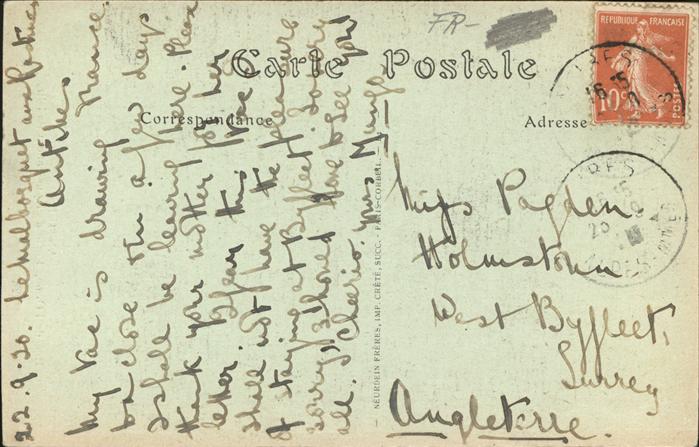 FR-
Carte Postale
Correspondance
Adresse
REPUBLIQUE FRANÇAISE
10c
POSTES
22.9.20. Le Malbosquet aux Pastres
Antibes France.
My Vac is drawing
to a close & in a few days
I shall be leaving here. Please
thank your mother for her
letter. I fear this Vac I
shall not have the pleasure
of staying at Byfleet. I'm very
sorry, I should love to see you
all. Cheerio. yours Mungo
NEURDEIN FRÈRES, IMP. CRÉTÉ, SUCC. - PARIS-CORBEIL.
Miss Pagden
Holmstown
West Byfleet,
Surrey
Angleterre.